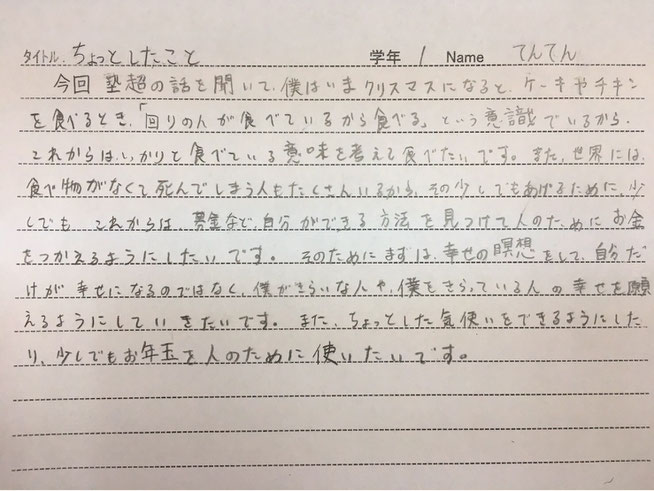 タイトル. ちょっとしたこと 学年 1 Name てんてん
今回 塾超の話を聞いて、僕はいまクリスマスになると、ケーキやチキン
を食べるとき、「回りの人が食べているから食べる」という意識でいるから、
これからはしっかりと食べている意味を考えて食べたいです。また、世界には、
食べ物がなくて死んでしまう人もたくさんいるから、その少しでもあげるために、少
しでも これからは、募金など、自分ができる方法を見つけて人のためにお金
をつかえるようにしたいです。そのためにまずは、幸せの瞑想をして、自分だ
けが幸せになるのではなく、僕がきらいな人や、僕をきらっている人の幸せを願
えるようにしていきたいです。また、ちょっとした気使いをできるようにした
り、少しでもお年玉を人のために使いたいです。